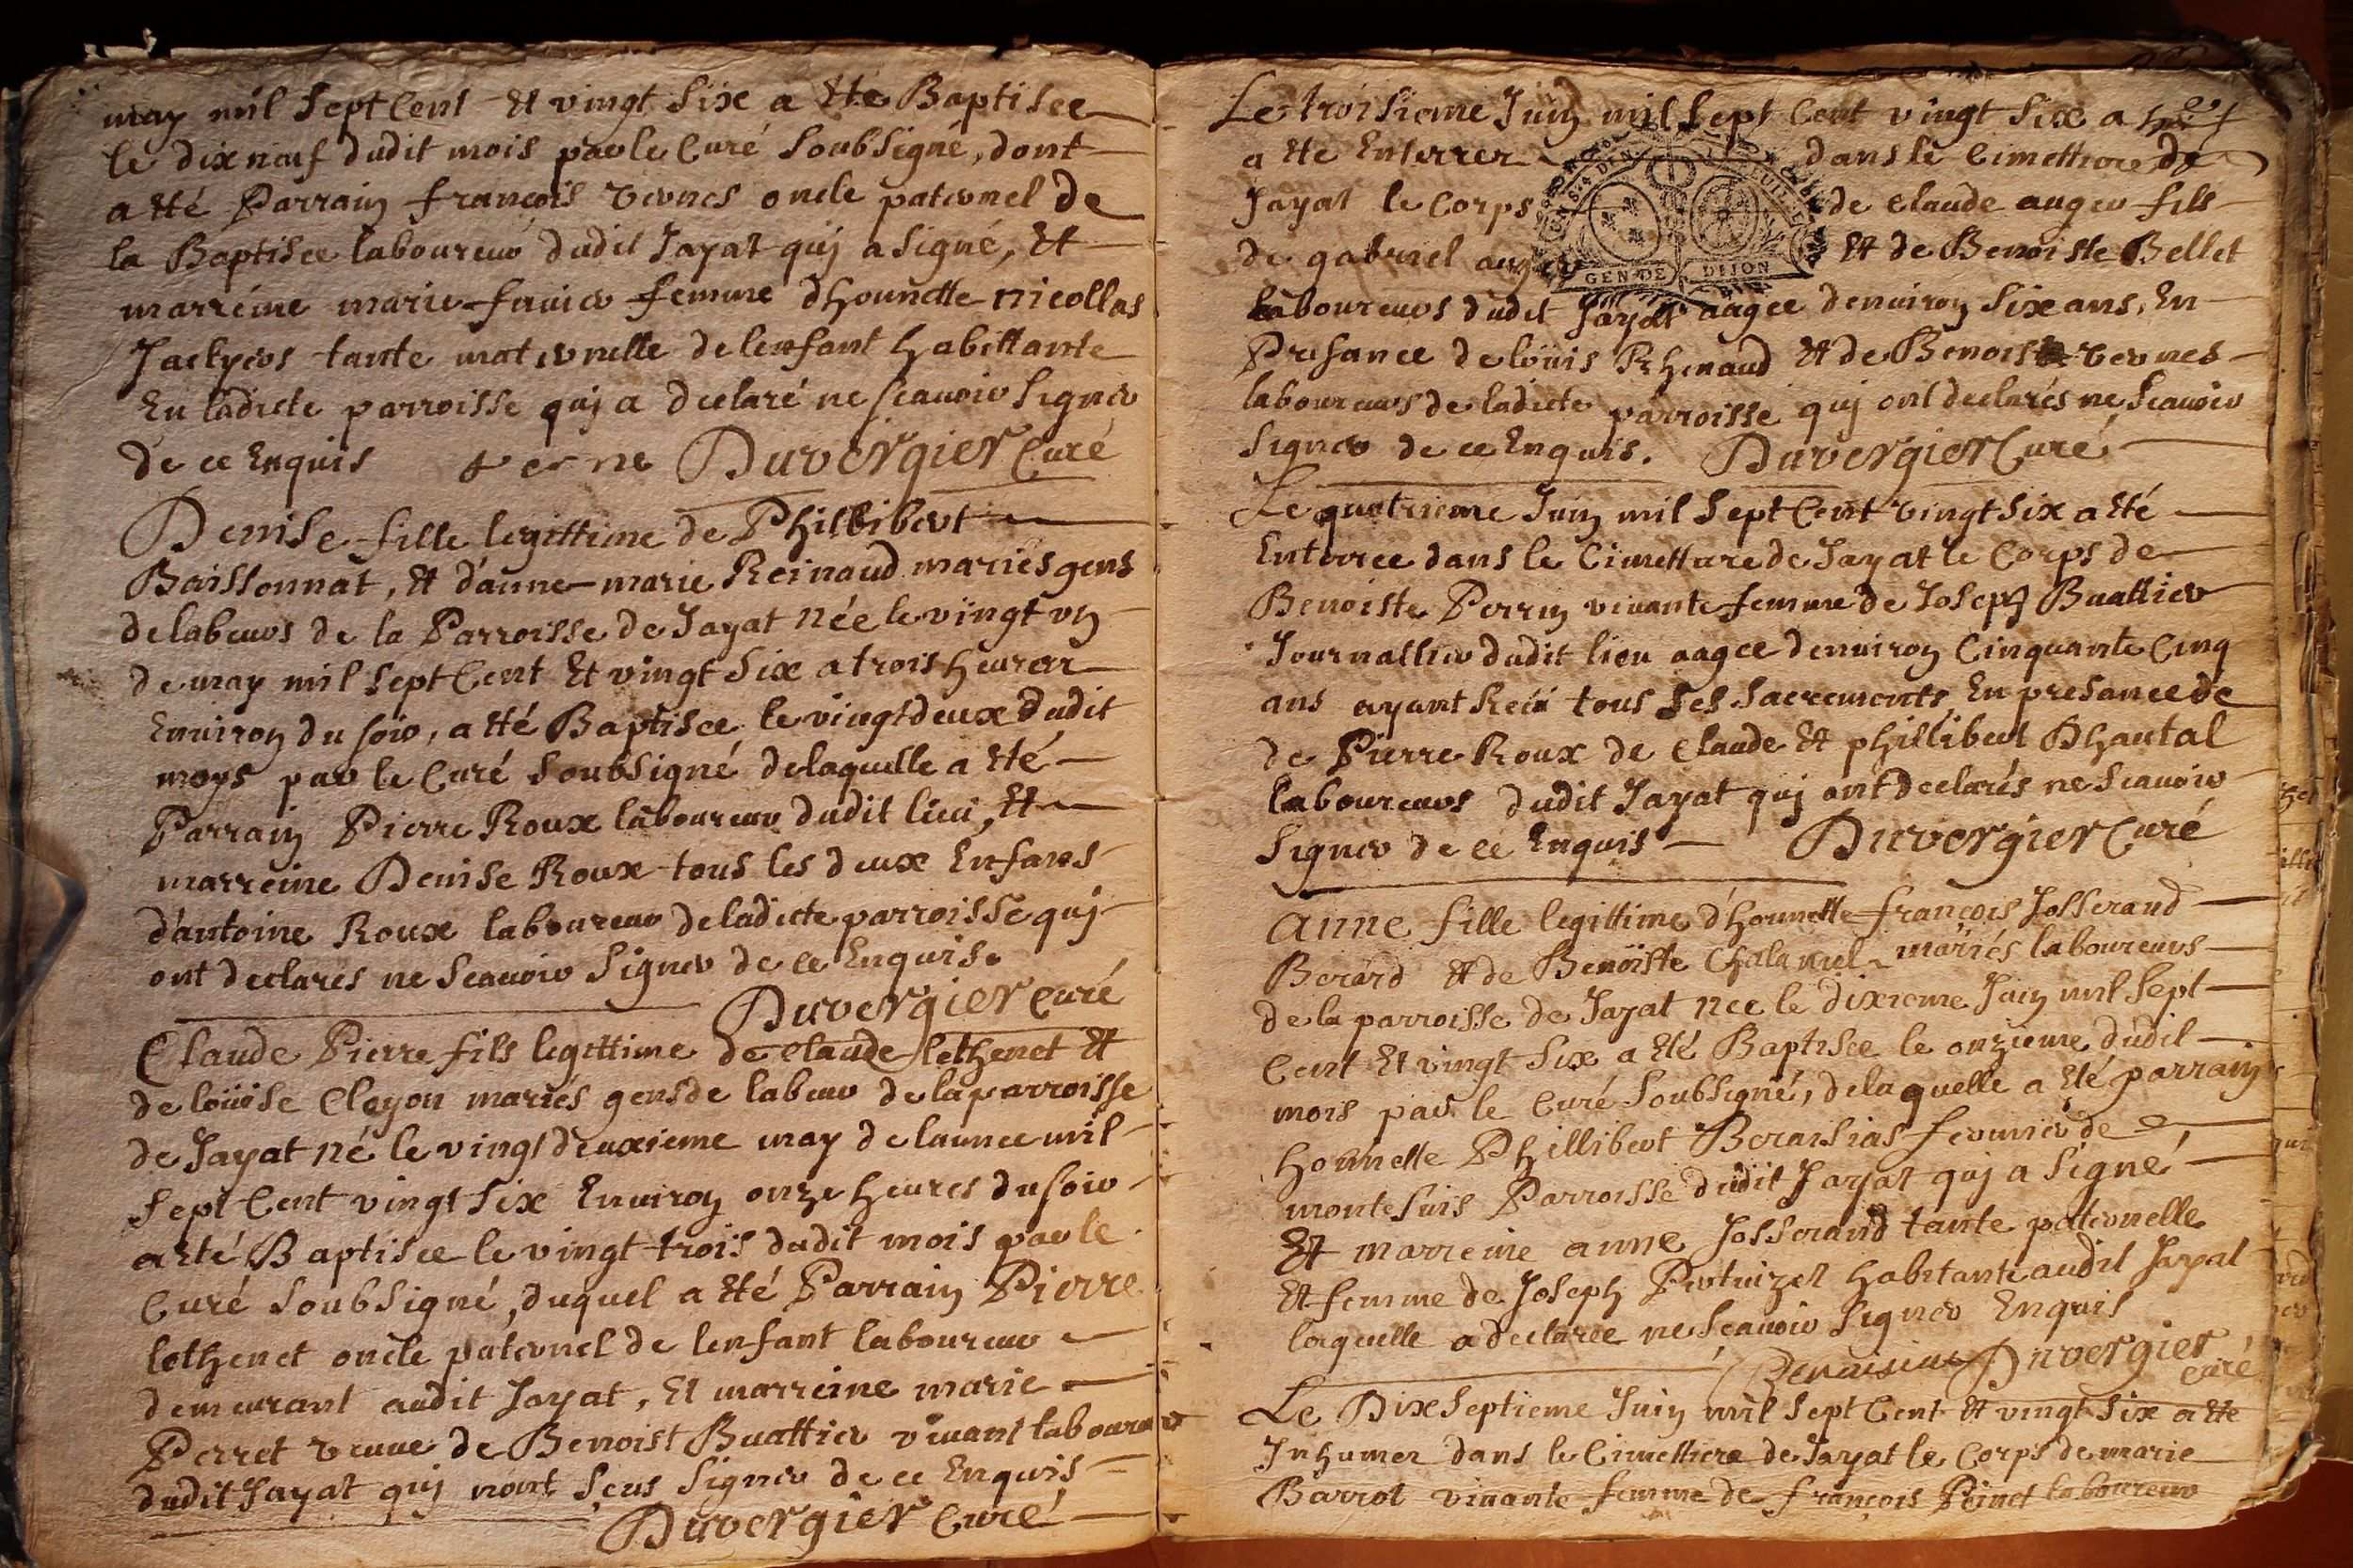 may mil sept Cent Et vingt Six a Ete Baptisee
le dix neuf dudit mois par le Curé Soubsigné, dont
a Eté Parrain françois vernes oncle paternel de
la Baptisee laboureur dudit Jayat quj a signé, Et
marréine marie feuier femme dhounette nicollas
Jackyers tante maternelle de lenfant habittante
En ladicte parroisse quj a declaré ne scauoir signer
de ce Enquis verne Duvergier Curé
Denise fille legittime de Phillibert
Baissonnat, Et d'anne-marie Reinaud mariés gens
de labeurs de la Parroisse de Jayat née le vingt vn
de may mil sept Cent Et vingt Six a trois heures
Enuiron du soir, a Eté Baptisee le vingt deux dudit
moys par le Curé Soubsigné de laquelle a Eté
Parrain Pierre Roux laboureur dudit lieu, Et
marreine Denise Roux tous les deux Enfans
d'antoine Roux laboureur de ladicte parroisse quj
ont declarés ne scauoir signer de ce Enquis.
Duvergier Curé
Claude Pierre fils legittime de Claude lethenet Et
de loüise Cleyon mariés gens de labeur de la parroisse
de Jayat né le vingt deuxieme may de lannee mil
sept Cent vingt Six Enuiron onze heures du soir
a Eté Baptisee le vingt trois dudit mois par le
Curé Soubsigné, duquel a Eté Parrain Pierre
lethenet oncle paternel de lenfant laboureur
demeurant audit Jayat, Et marreine marie
Perret veuue de Benoist Buattier viuant laboureur
dudit Jayat quj nont sçeus signer de ce Enquis
Duvergier Curé
Le troisieme Juin mil sept Cent vingt Six a
a Ete Enterrer dans le Cimettiere de
Jayat le Corps de Claude auger fils
de gabriel auger Et de Benoiste Bellet
GEN·DE DIJON
laboureurs dudit Jayat aagee denuiron Six ans, En
Presance de loüis Rhenaud Et de Benoist vernes
laboureurs de ladicte parroisse quj ont declarés ne Scauoir
Signer de ce Enquis. Duvergier Curé
Le quatrieme Juin mil Sept Cent vingt Six a Eté
Enterree dans le Cimettiere de Jayat le Corps de
Benoiste Perrin viuante femme de Joseph Buattier
Journallier dudit lieu aagee denuiron Cinquante Cinq
ans ayant Receü tous Ses Sacrements, En presance de
de Pierre Roux de Claude Et phillibert Dhautal
laboureurs dudit Jayat quj ont declarés ne Scauoir
Signer de ce Enquis Duvergier Curé
anne fille legittime d'hounette françois Josserand
Berard Et de Benoiste Chalamel mariés laboureurs
de la parroisse de Jayat nee le dixieme Juin mil Sept
Cent Et vingt Six a Eté Baptisee le onzieme dudit
mois par le Curé Soubsigné, de laquelle a Eté parrain
honnette Phillibert Beraisias fermier de
montesuis Parroisse dudit Jayat quj a signé
Et marreine anne Josserand tante paternelle
Et femme de Joseph Pertuizet habitante audit Jayat
laquelle a declaree ne Scauoir Signer Enquis
Beraisias Duvergier
Curé
Le Dix Septieme Juin mil Sept Cent Et vingt Six a Ete
Inhumer dans le Cimettiere de Jayat le Corps de marie
Barrot viuante femme de françois Peinet laboureur